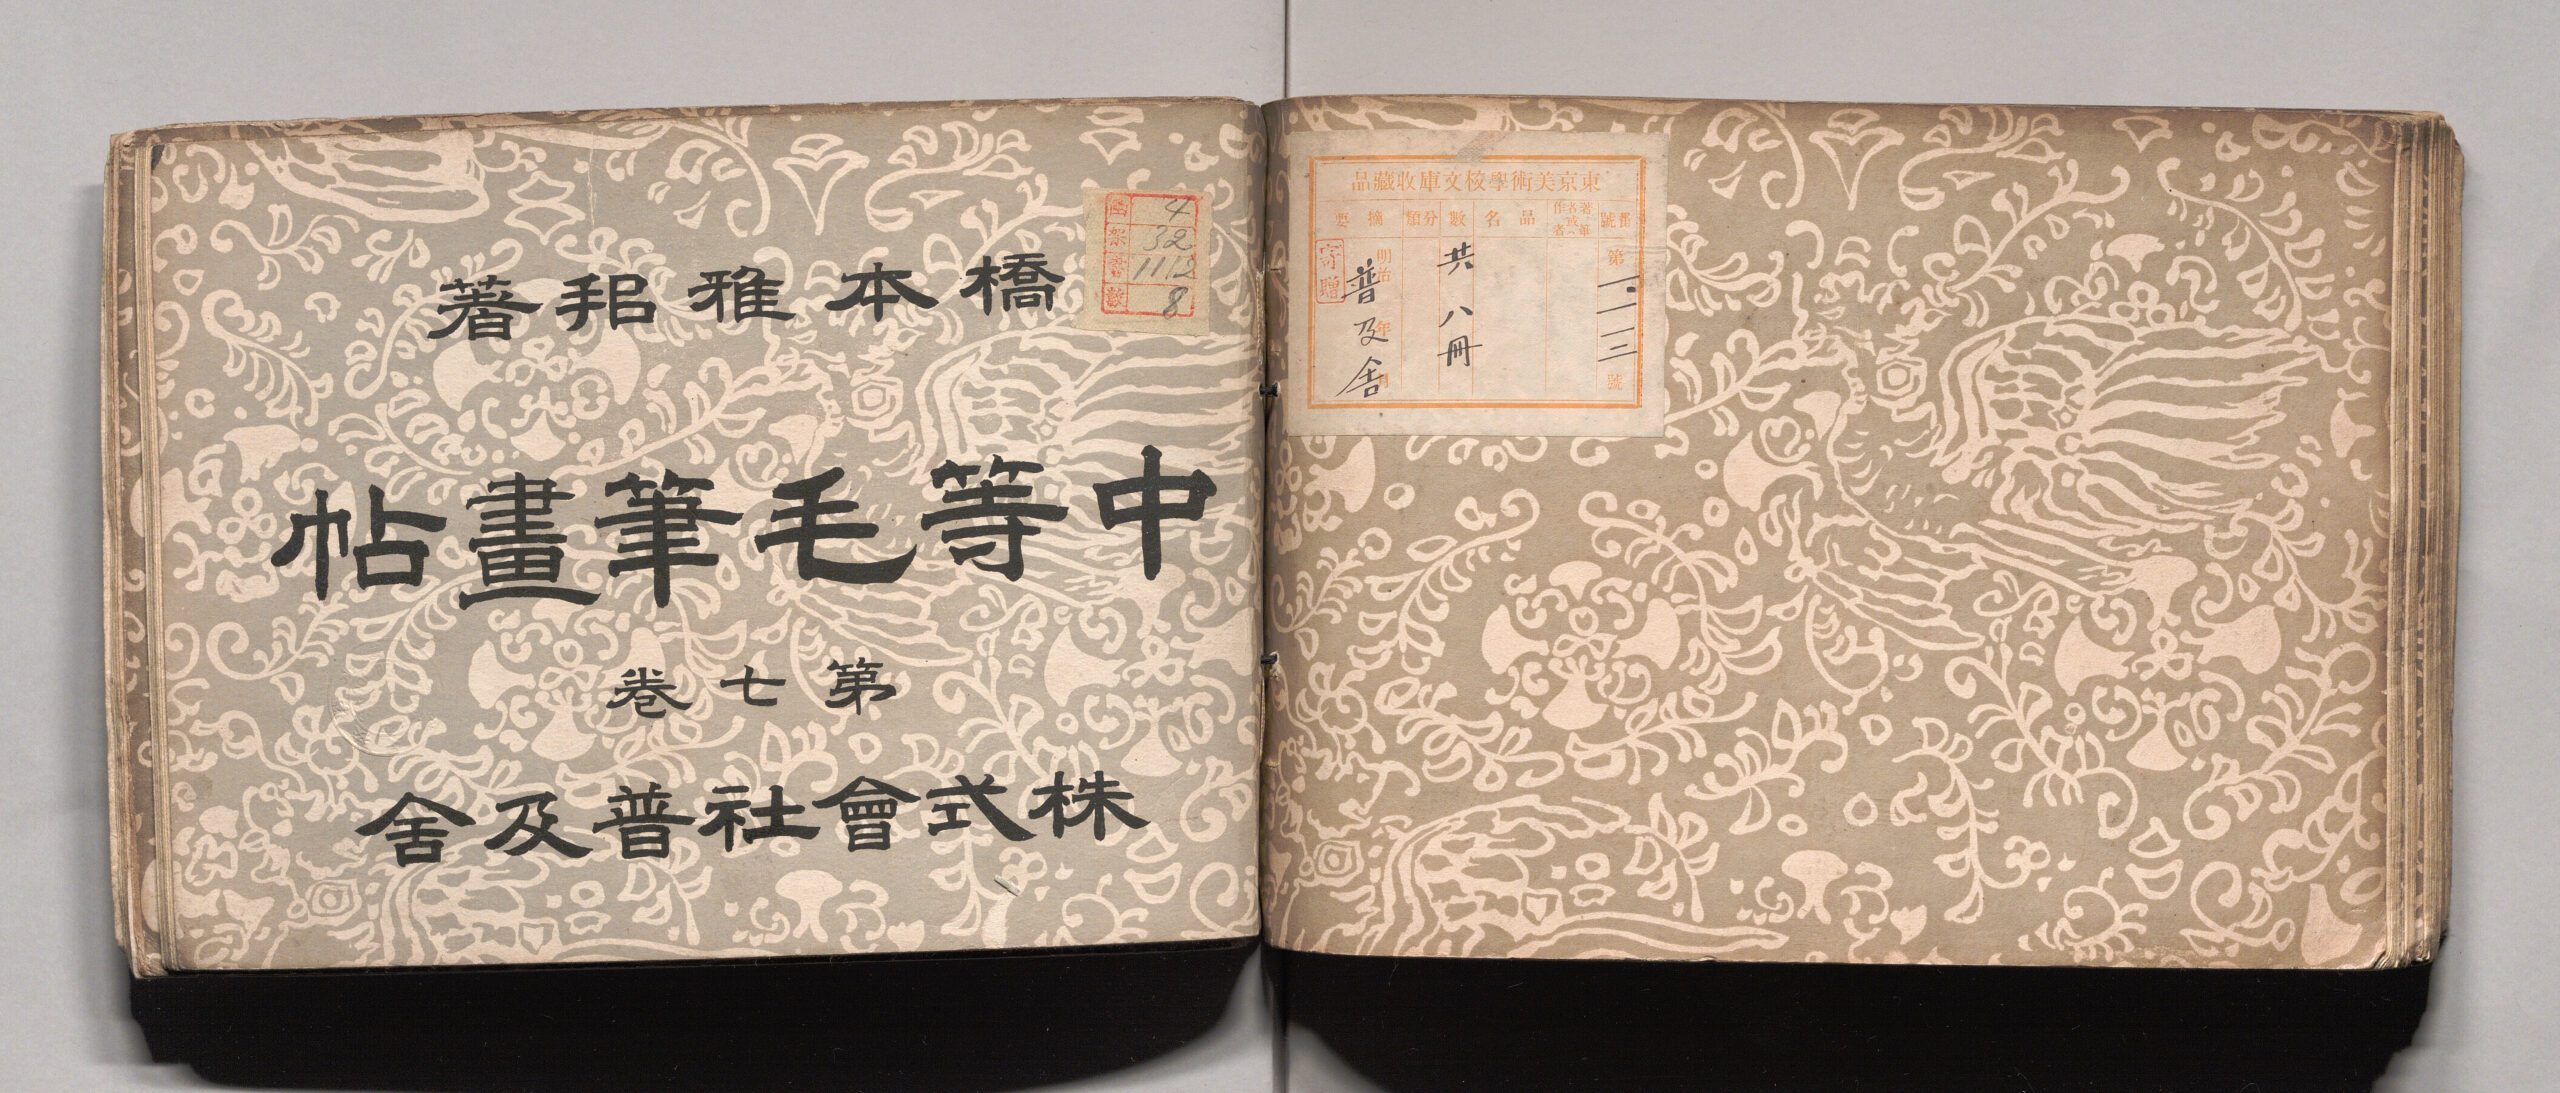 橋本雅邦著
中等毛筆畫帖
第七卷
株式會社普及舍
函 4
架 32
番 1112
數 8
東京美術學校文庫收藏品
番號
著者或ハ筆作者
品名
數
分類
摘要
第一二一三號
共八冊
明治 年 月
普及舍
寄贈